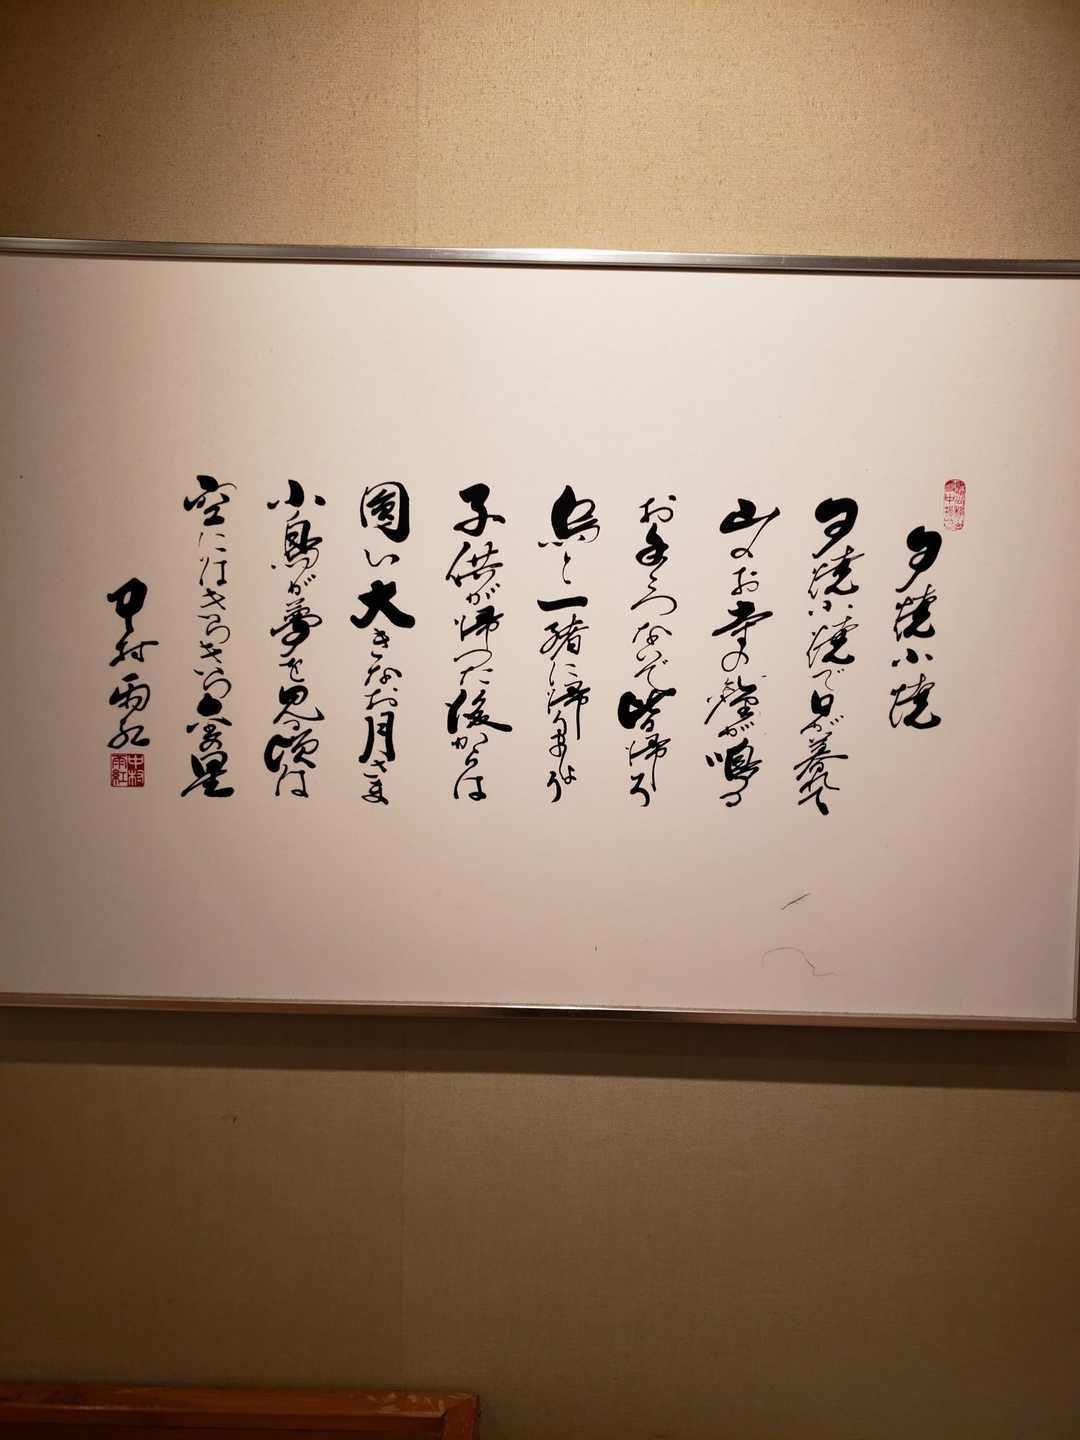 夕焼小焼
夕焼小焼で日が暮れて
山のお寺の鐘が鳴る
お手々つないで皆帰ろ
烏と一緒に帰りましょう
子供が帰った後からは
圓い大きなお月さま
小鳥が夢を見る頃は
空にはきらきら金の星
中村雨紅
中村
雨紅